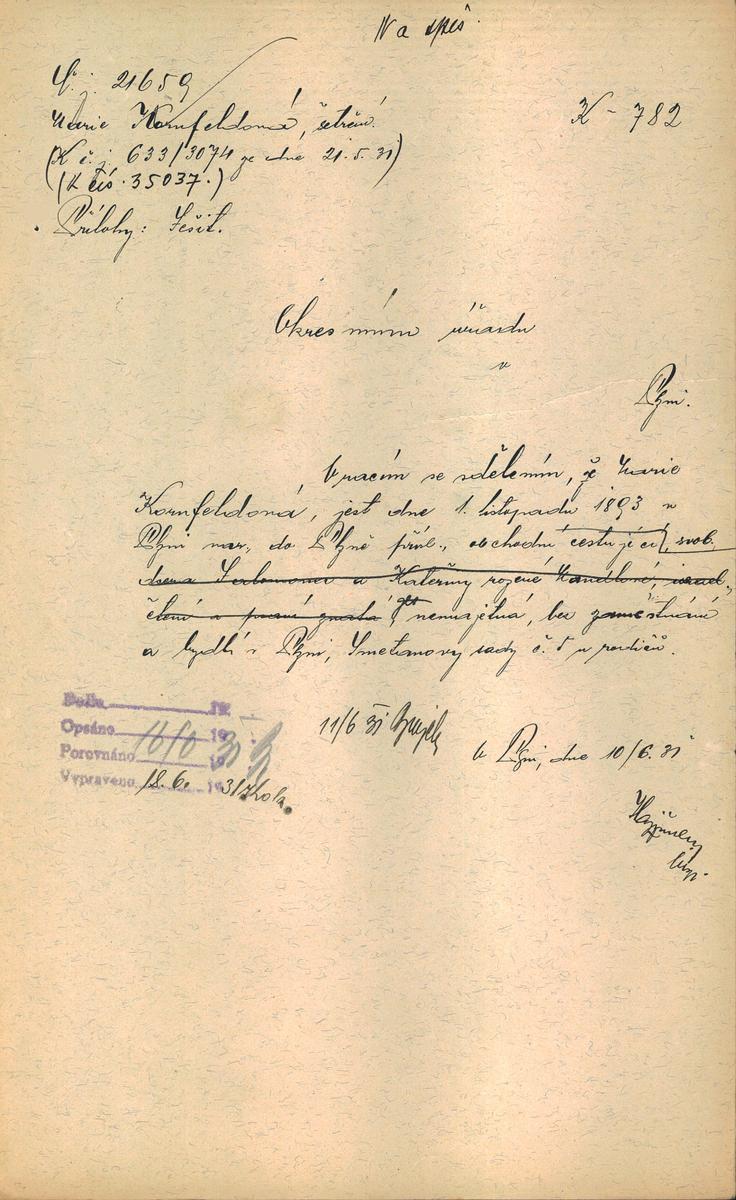 Na spis
Č. j. 21659
Marie Kornfeldová, šetření.
K - 782
(K č. j. 633/3074 ze dne 21.5.31)
(K čís. 35037.)
Přílohy: Sešit.
Okresnímu úřadu
v
Plzni.
Vracím se sdělením, že Marie
Kornfeldová, jest dne 1. listopadu 1893 v
Plzni nar., do Plzně přísl., obchodní cestující, svob.
dcera Salomona a Kateřiny rozené Mandlové,
a jest nemajetná, bez zaměstnání
a bydlí v Plzni, Smetanovy sady č. 5 u rodičů.
11/6 31
V Plzni, dne 10/6. 31
Došlo 19
Opsáno 19
Porovnáno 19
Vypraveno 18.6. 1931